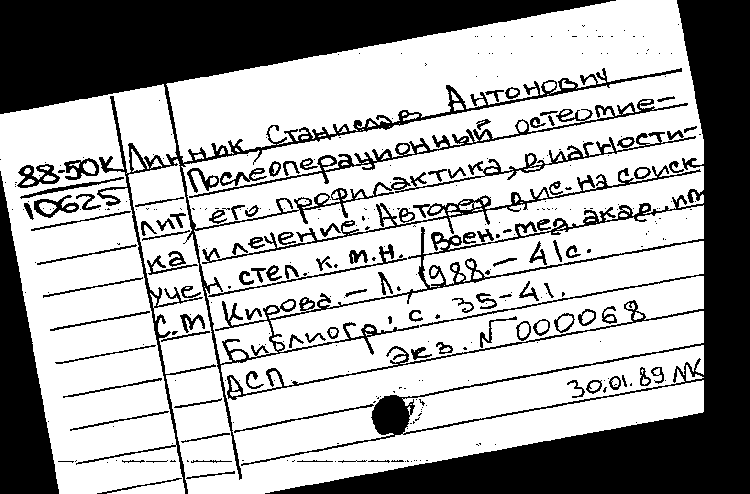 Линник, Станислав Антонович
88-50К
10625
Послеоперационный остеомие-
лит, его профилактика, диагности-
ка и лечение: Автореф дис. на соиск
учен. степ. к. м. н. / Воен.-мед. акад. им
С.М Кирова. - Л., 1988. - 41с.
Библиогр.: с. 35-41.
ДСП. Экз. № 000068
30.01.89 МК